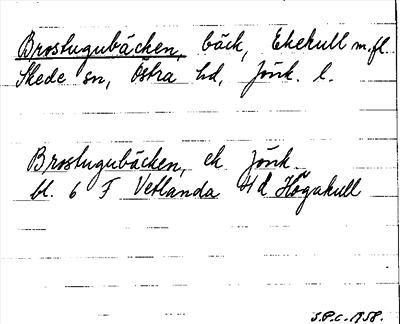 Brostugubäcken, bäck, Ekekull m.fl.
Skede sn, Östra hd, Jönk. l.
Brostugubäcken, ek Jönk
bl. 6 F Vetlanda 4d Högakull
S.P.C. 1958.